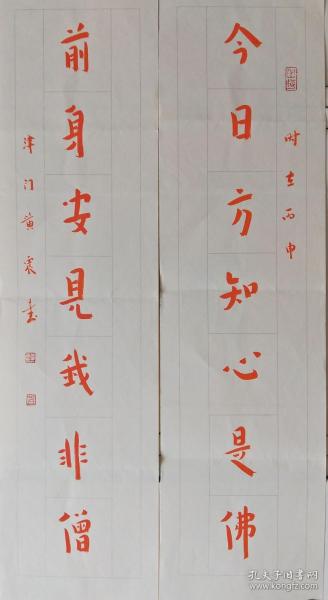 今日方知心是佛
时在丙申
前身安見我非僧
津门黄震書
孔夫子旧书网